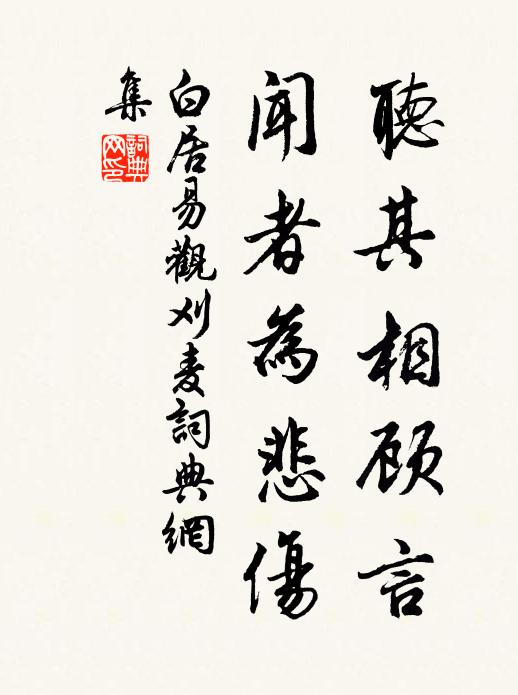 聽其相顾言
闻者為悲傷
白居易觀刈麦詞典網
集
詞典
网印